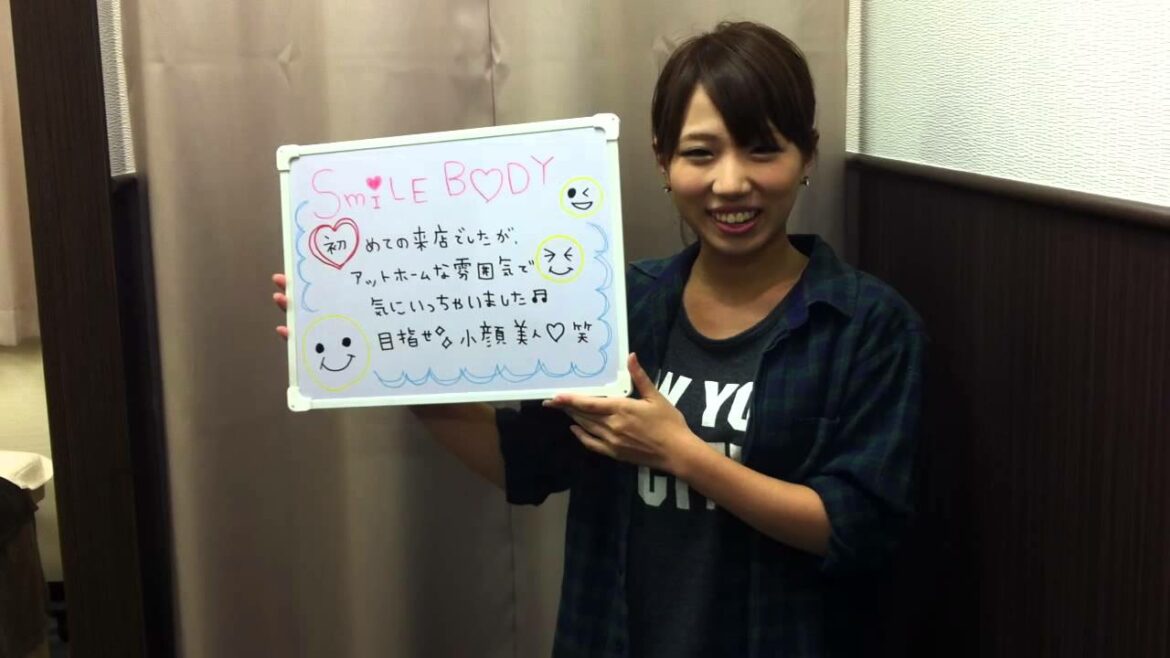 SmiLE BODY
初めての来店でしたが、
アットホームな雰囲気で
気にいっちゃいました♬
目指せ 小顔美人♡笑
W YO
CIT